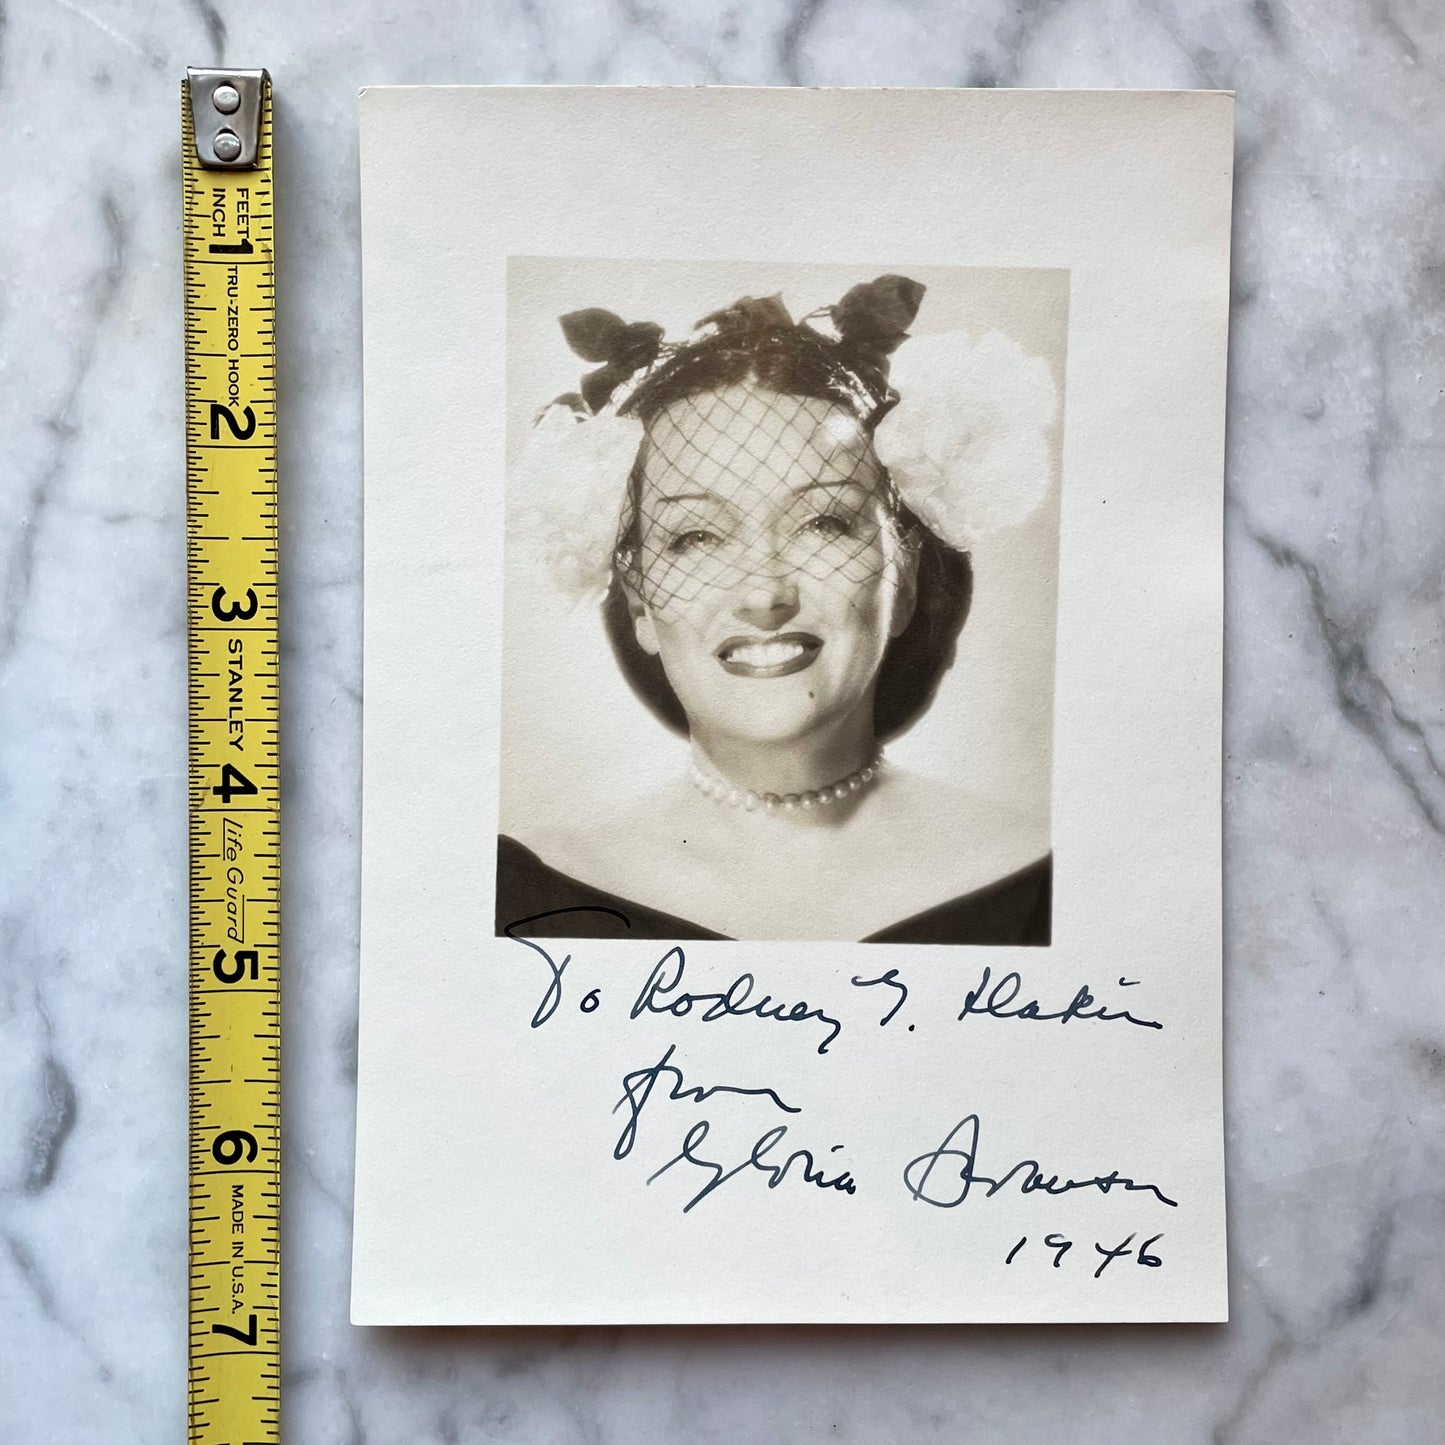 FEET
INCH
1
TRU-ZERO HOOK
2
3
STANLEY
4
Life Guard
5
6
MADE IN U.S.A.
7
To Rodney G. Hakin
from
Gloria Swanson
1946